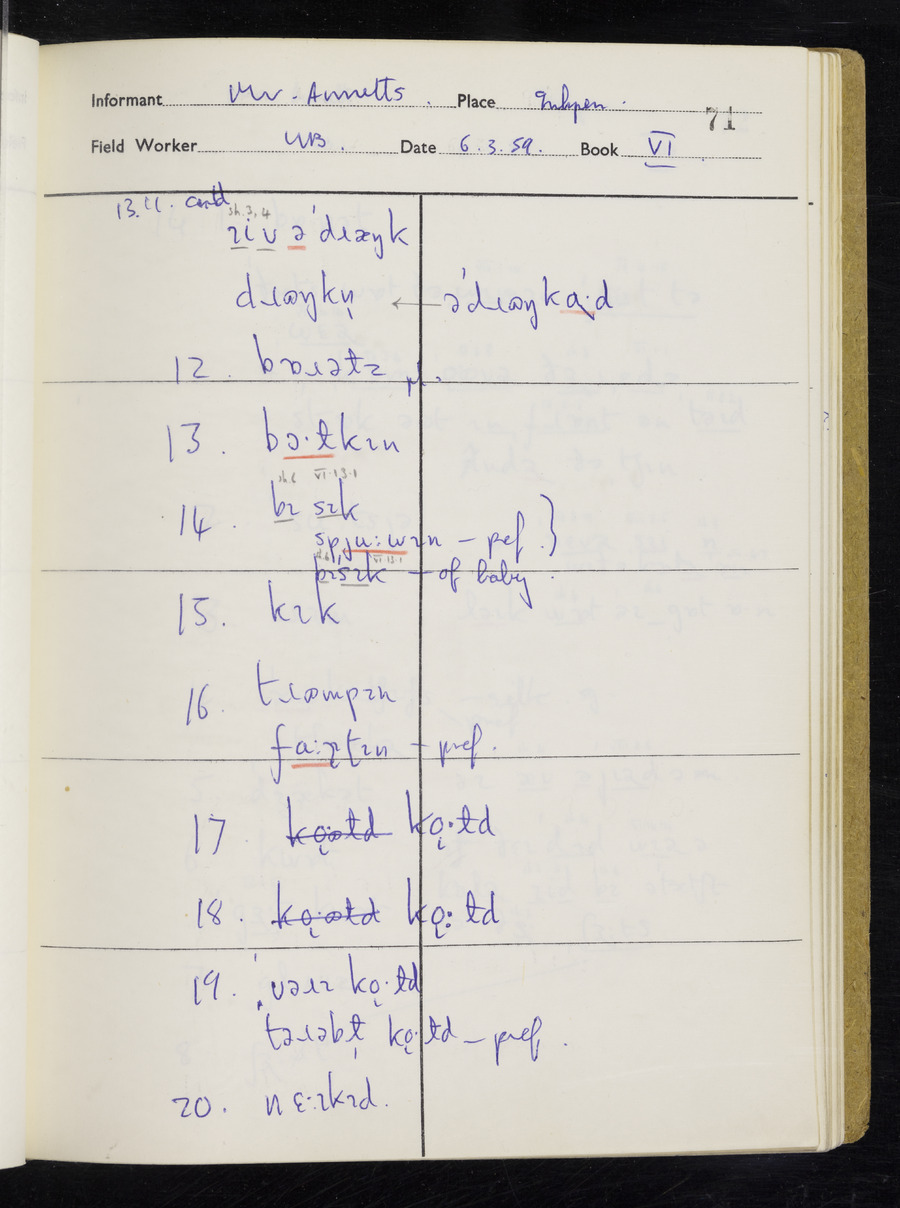 Informant Mr. Annetts. Place Inkpen.
71
Field Worker WB. Date 6.3.59. Book VI
13.11. contd
sh. 3, 4
ɹiv ə ˈdɹæŋk
dɹæŋkn̩ ← əˈdɹæŋkəɪd
12. bɒɹəts pl.
13. bɔ·ɫkɪn
sh. 6 VI.13.1
14. bɪ sɪk
spju:wɪn – pref. }
VI.13.1
bɪsɪk – of baby.
15. kɪk
16. tɹæmpɪn
fa:ɪtɪn – pref.
17 kọ·ɫd
18. kọ:ɫd
19. ˈvəɹɪ kọ·ɫd
təɹəbɫ̩ kọ·ɫd – pref.
20. nɛ:ɪkɪd.